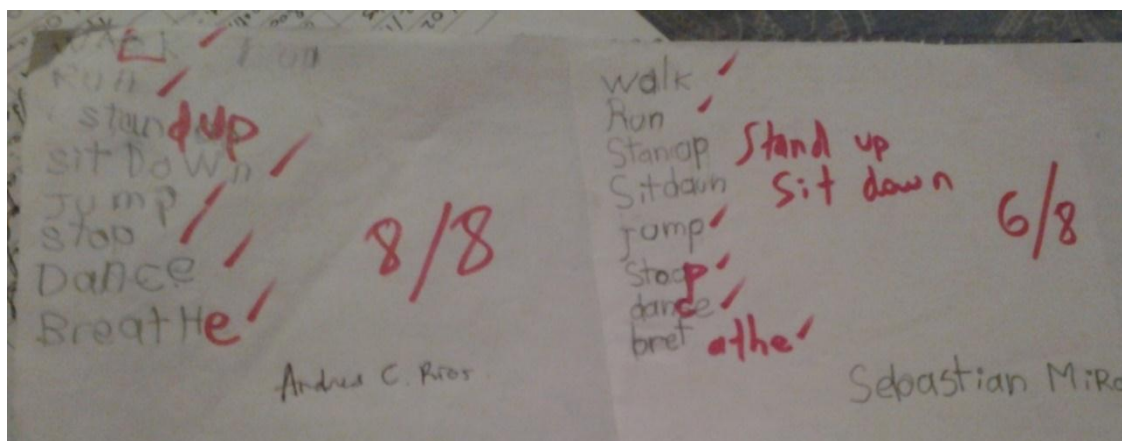 Run
standup
sit Down
Jump
stop
Dance
BreatHe
8/8
Andrea C. Rios
walk
Run
Stanop Stand up
Sitdaun Sit down
jump
stop
dance
bret athe
6/8
Sebastian MiRa